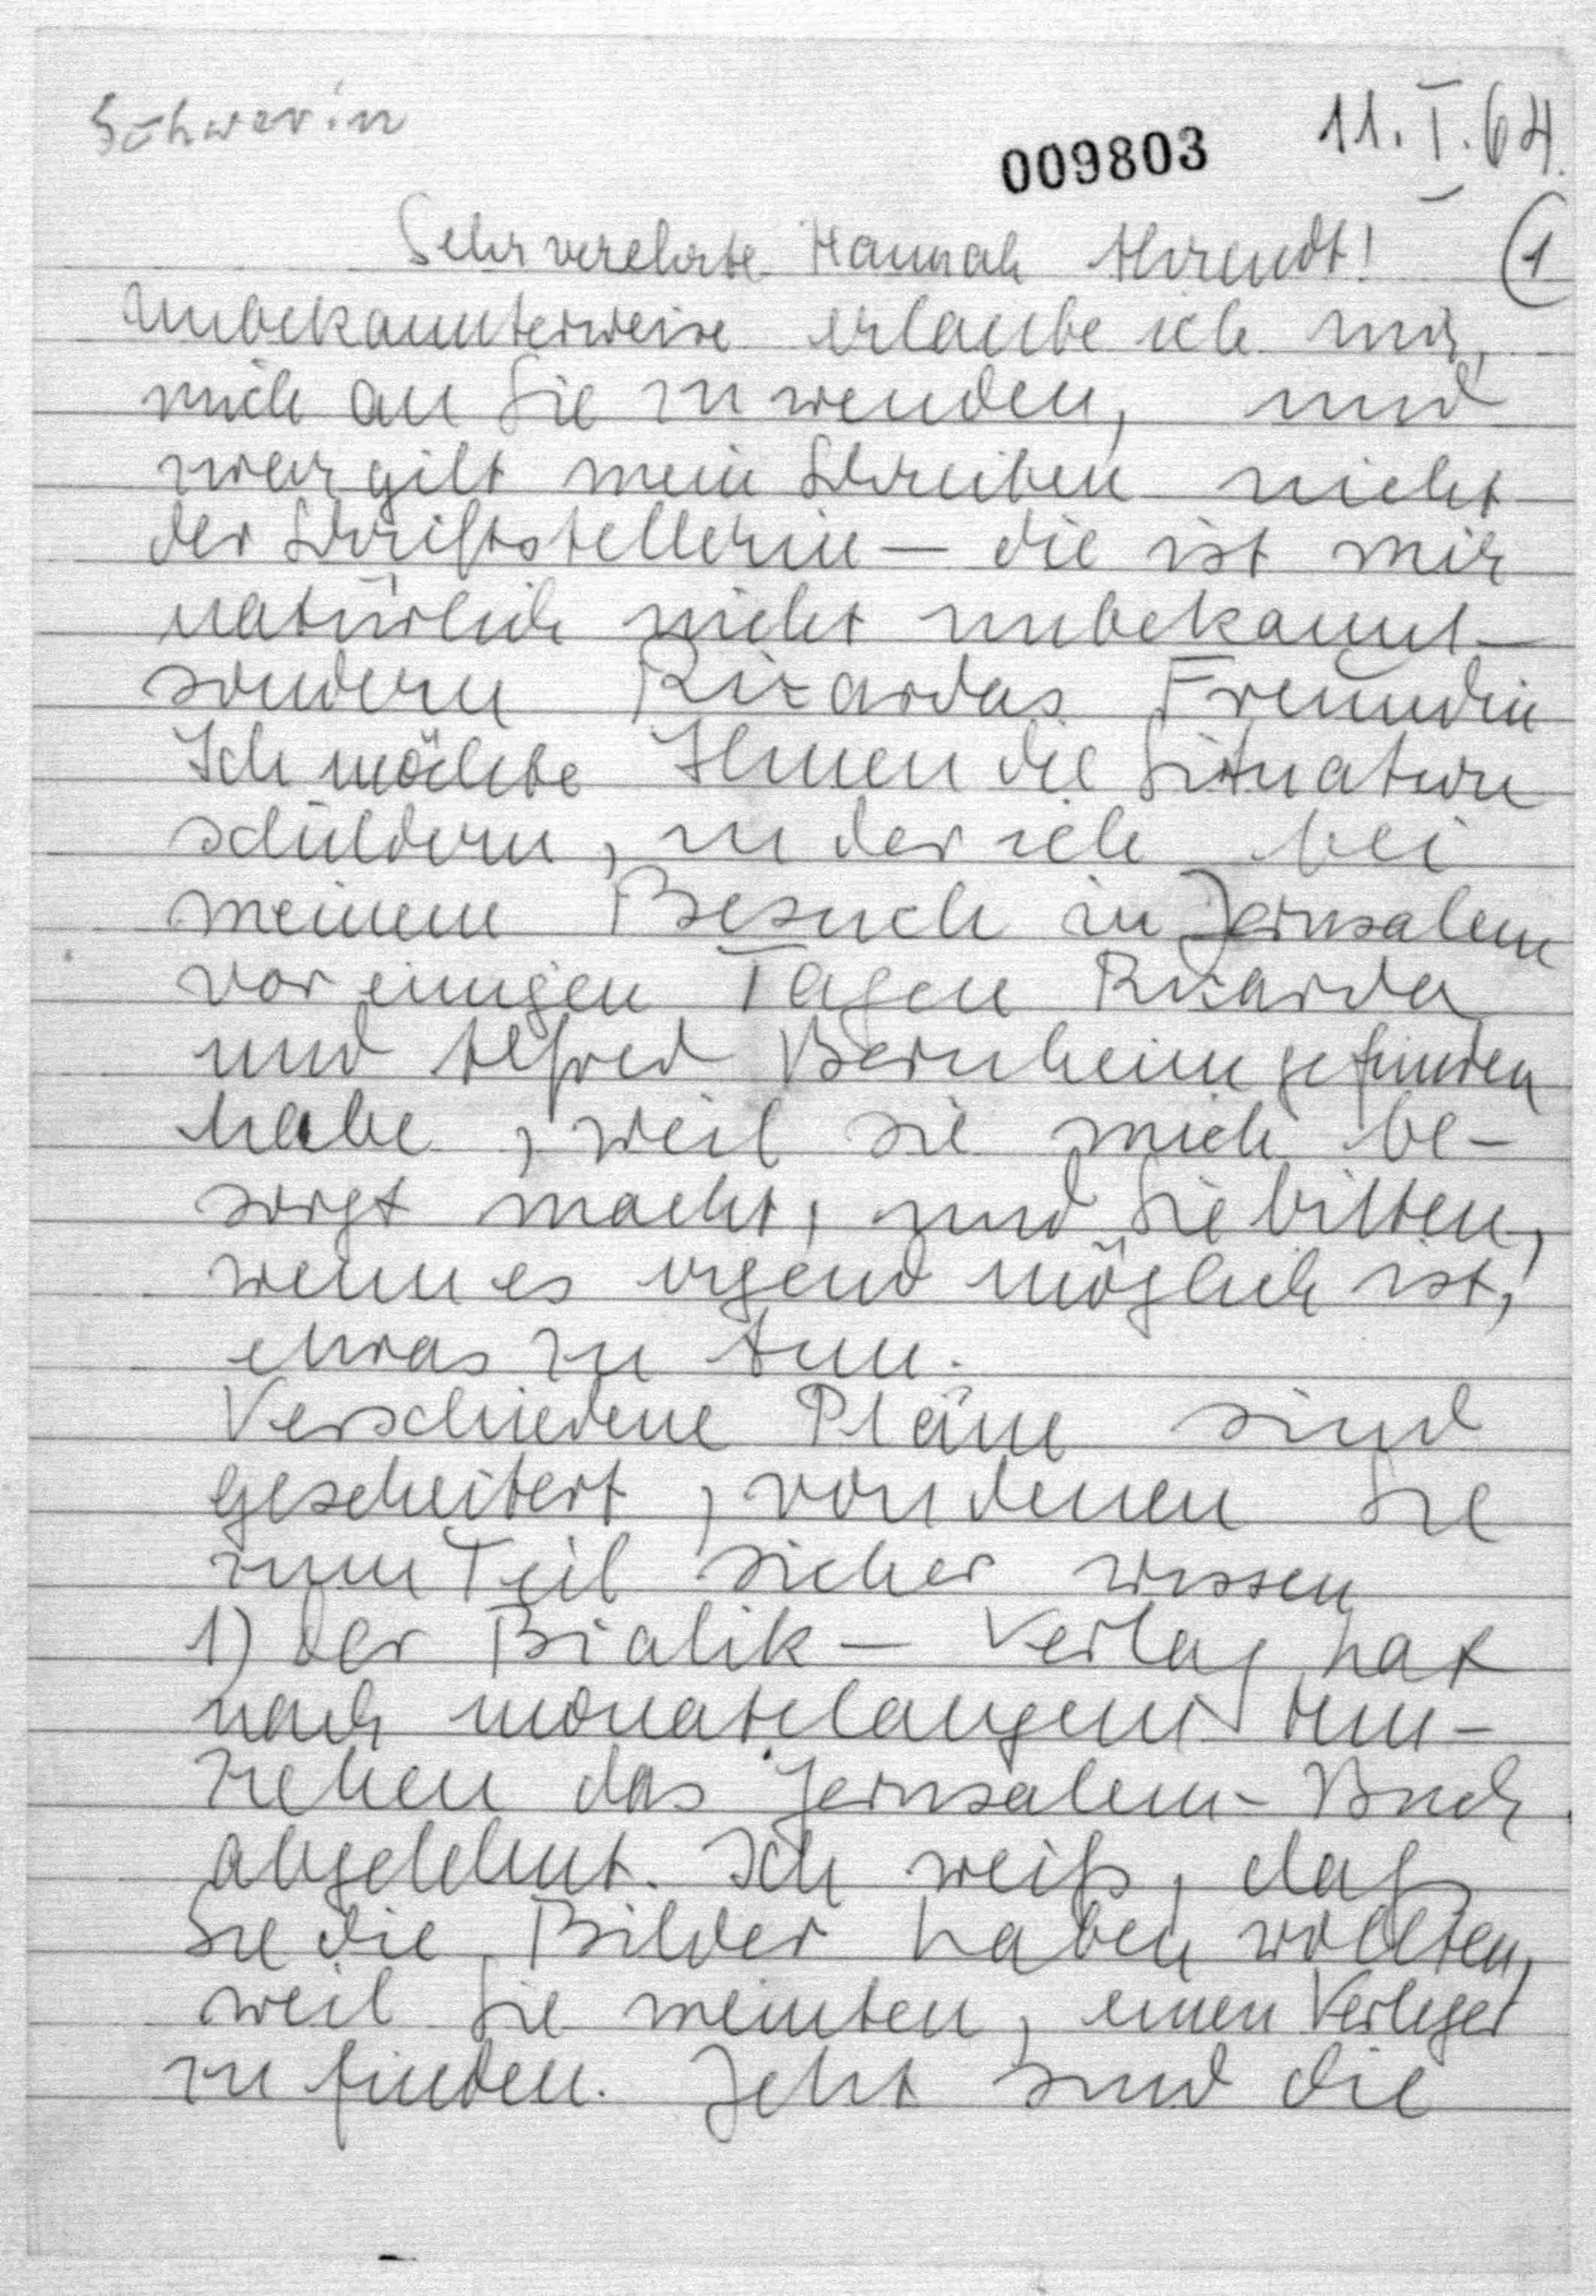 Schwerin
009803
11.I.64.
Sehr verehrte Hannah Ahrendt!
(1
unbekannterweise erlaube ich mir,
mich an Sie zu wenden, und
zwar gilt mein Schreiben nicht
der Schriftstellerin — die ist mir
natürlich nicht unbekannt —
sondern Ricardas Freundin
Ich möchte Ihnen die Situation
schildern, in der ich bei
meinem Besuch in Jerusalem
vor einigen Tagen Ricarda
und Alfred Bernheim gefunden
habe, weil sie mich be-
sorgt macht, und Sie bitten,
wenn es irgend möglich ist,
etwas zu tun.
Verschiedene Pläne sind
gescheitert, von denen Sie
zum Teil sicher wissen
1) Der Bialik – Verlag hat
nach monatelangem Hin-
ziehen das Jerusalem-Buch
abgelehnt. Ich weiß, daß
Sie die Bilder haben wollten,
weil Sie meinten, einen Verleger
zu finden. Jetzt sind die